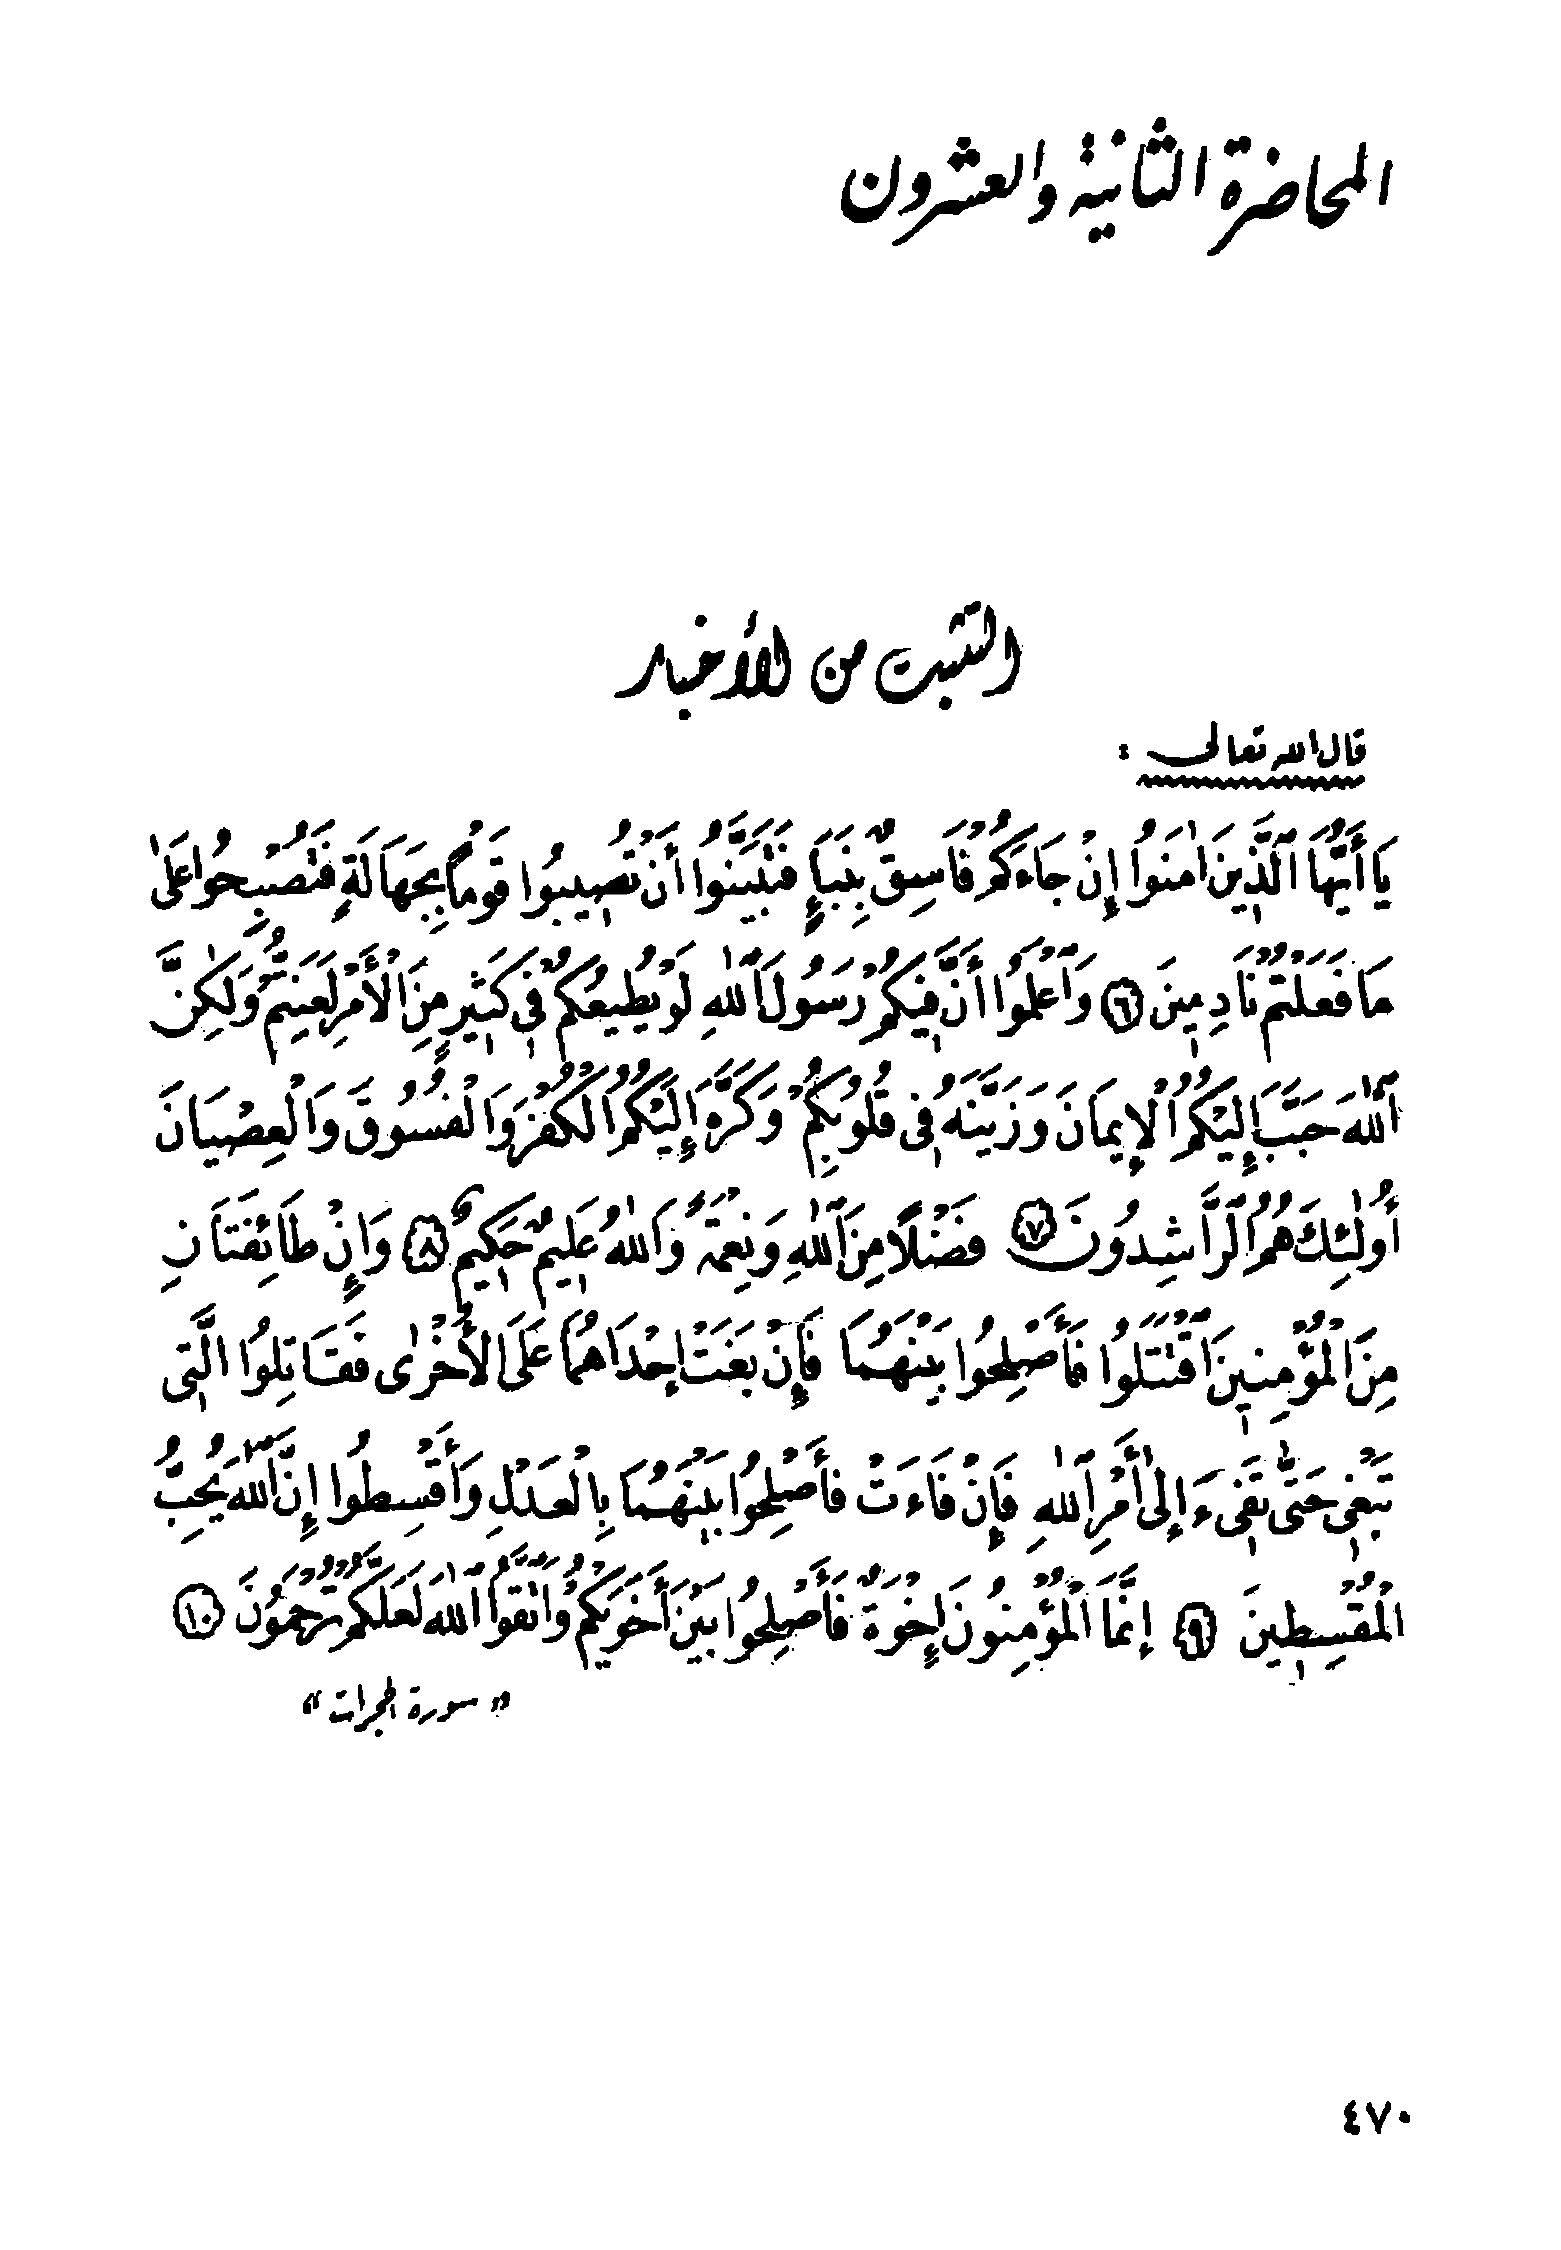 المحاضرة الثانية والعشرون
التثبت من الأخبار
قال الله تعالى :
يَا أَيُّهَا ٱلَّذِينَ اٰمَنُوا إِنْ جَاءَكُمْ فَاسِقٌ بِنَبَإٍ فَتَبَيَّنُوا أَنْ تُصِيبُوا قَوْمًا بِجَهَالَةٍ فَتُصْبِحُوا عَلَىٰ
مَا فَعَلْتُمْ نَادِمِينَ ⑥ وَٱعْلَمُوا أَنَّ فِيكُمْ رَسُولَ ٱللّٰهِ لَوْ يُطِيعُكُمْ فِي كَثِيرٍ مِنَ الْأَمْرِ لَعَنِتُّمْ وَلَكِنَّ
ٱللّٰهَ حَبَّبَ إِلَيْكُمُ الْإِيمَانَ وَزَيَّنَهُ فِي قُلُوبِكُمْ وَكَرَّهَ إِلَيْكُمُ الْكُفْرَ وَالْفُسُوقَ وَالْعِصْيَانَ
أُولٰئِكَ هُمُ ٱلرَّاشِدُونَ ⑦ فَضْلًا مِنَ ٱللّٰهِ وَنِعْمَةً وَٱللّٰهُ عَلِيمٌ حَكِيمٌ ⑧ وَإِنْ طَائِفَتَانِ
مِنَ الْمُؤْمِنِينَ ٱقْتَتَلُوا فَأَصْلِحُوا بَيْنَهُمَا فَإِنْ بَغَتْ إِحْدَاهُمَا عَلَى الْأُخْرٰى فَقَاتِلُوا الَّتِي
تَبْغِي حَتَّىٰ تَفِيءَ إِلَىٰ أَمْرِ ٱللّٰهِ فَإِنْ فَاءَتْ فَأَصْلِحُوا بَيْنَهُمَا بِالْعَدْلِ وَأَقْسِطُوا إِنَّ ٱللّٰهَ يُحِبُّ
الْمُقْسِطِينَ ⑨ إِنَّمَا ٱلْمُؤْمِنُونَ إِخْوَةٌ فَأَصْلِحُوا بَيْنَ أَخَوَيْكُمْ وَٱتَّقُوا ٱللّٰهَ لَعَلَّكُمْ تُرْحَمُونَ ⑩
« سورة الحجرات »
٤٧٠